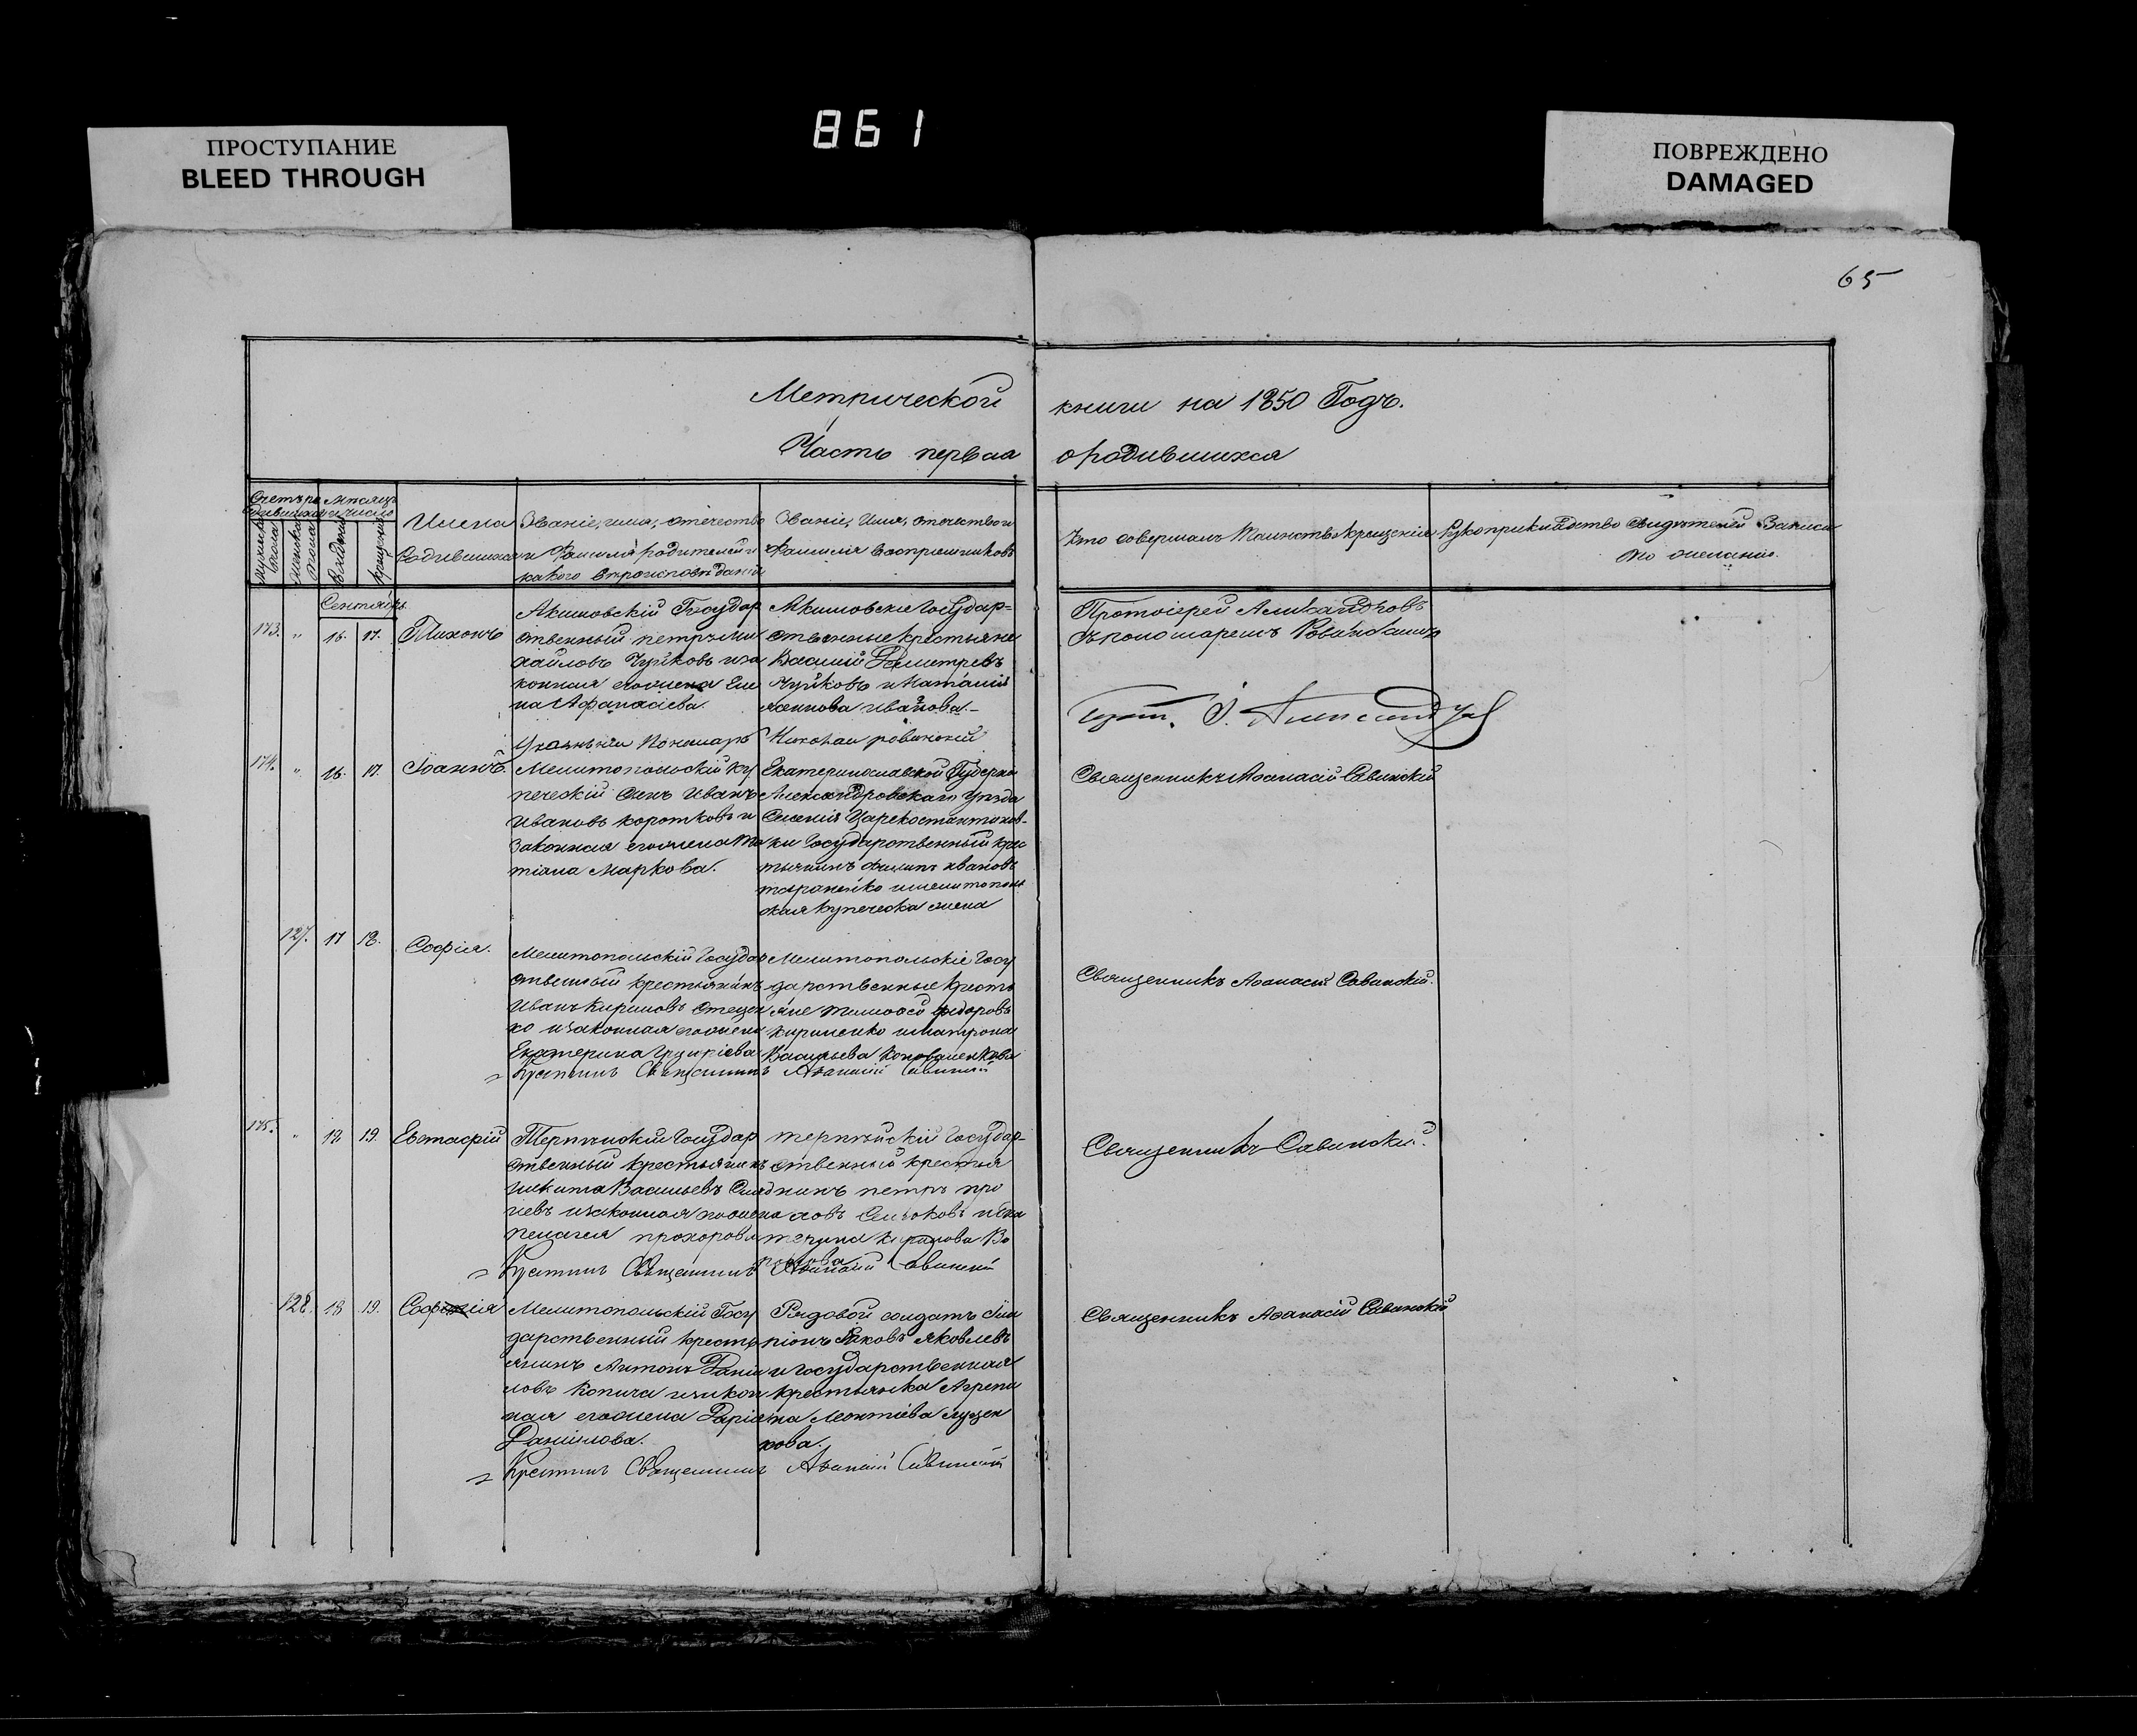 861
ПРОСТУПАНИЕ
BLEED THROUGH
ПОВРЕЖДЕНО
DAMAGED
65
Метрической книги на 1850 Годъ.
Часть первая о родившихся
Имена родившихся
Званіе, имя, отечество и фамилія родителей и какого вѣроисповѣданія
Званіе, Имя, отечество и фамилія воспріемниковъ
Кто совершалъ Таинство крещенія
Рукоприкладство свидѣтелей записи по желанію.
Сентябрь
173. " 16. 17. Тихонъ
Акимовскій Государ
ственный петръ Ми
хайловъ Чуйковъ и за
конная его жена Еле
на Афанасіева.
Акимовскіе Государ=
ственные крестьяне
Василий Димитревъ
Чуйковъ и Наталія
Иванова.
Протоіерей Александровъ
съ пономаремъ
Указный Пономарь Николай ровинскій
174. " 16. 17. Іоаннъ.
Мелитопольскій ку
печескій сынъ Иванъ
Ивановъ коротковъ и
законная его жена Та
тіана Маркова.
Екатеринославской Губерніи
Александровскаго уѣзда
Селенія Царекостантинов-
ки Государственный крес
тьянинъ Филипъ Ивановъ
тараненко и мелитополь
ская купческа жена
Священникъ Афанасій Савинскій
127. 17 18. Софія.
Мелитопольскій Государ
ственный крестьянинъ
Иванъ Кириловъ Стецен
ко и законная его жена
Екатерина Григоріева
Мелитопольскіе Госу
дарственные кресть
яне Тимофей федоровъ
кириленко и Матрона
Васильева Коноваленкова
Священникъ Афанасій Савинскій.
Крестилъ Священникъ Афанасій Савинскій
175. " 18 19. Евстафій
Терпѣнскій Государ
ственный крестьянинъ
Никита Васильевъ
и законная его жена
пелагея прохорова
терпѣнскій Государ-
ственный крестья
нинъ петръ про
ховъ и Ека
терина Кирилова Во
Священникъ Савинскій.
Крестилъ Священникъ Афанасій Савинскій
128. 18 19. Софія
Мелитопольскій Госу
дарственный кресть
янинъ Антонъ Даніи
ловъ Копича и закон
ная его жена Дарія
Даніилова.
Рядовой солдатъ Ила
ріонъ Яковъ Яковлевъ
и Государственная
крестьянка Агрепи
на Леонтіева луцен
кова.
Священникъ Афанасій Савинскій
Крестилъ Священникъ Афанасій Савинскій